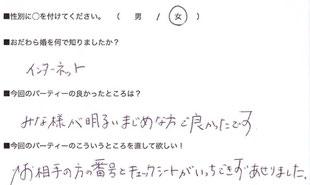 ■性別に○を付けてください。（ 男 / 女 ）
■おだわら婚を何で知りましたか？
インターネット
■今回のパーティーの良かったところは？
みな様が明るいまじめな方で良かったです
■今回のパーティーのこういうところを直して欲しい！
お相手の方の番号とチェックシートがいっちせずあせりました。